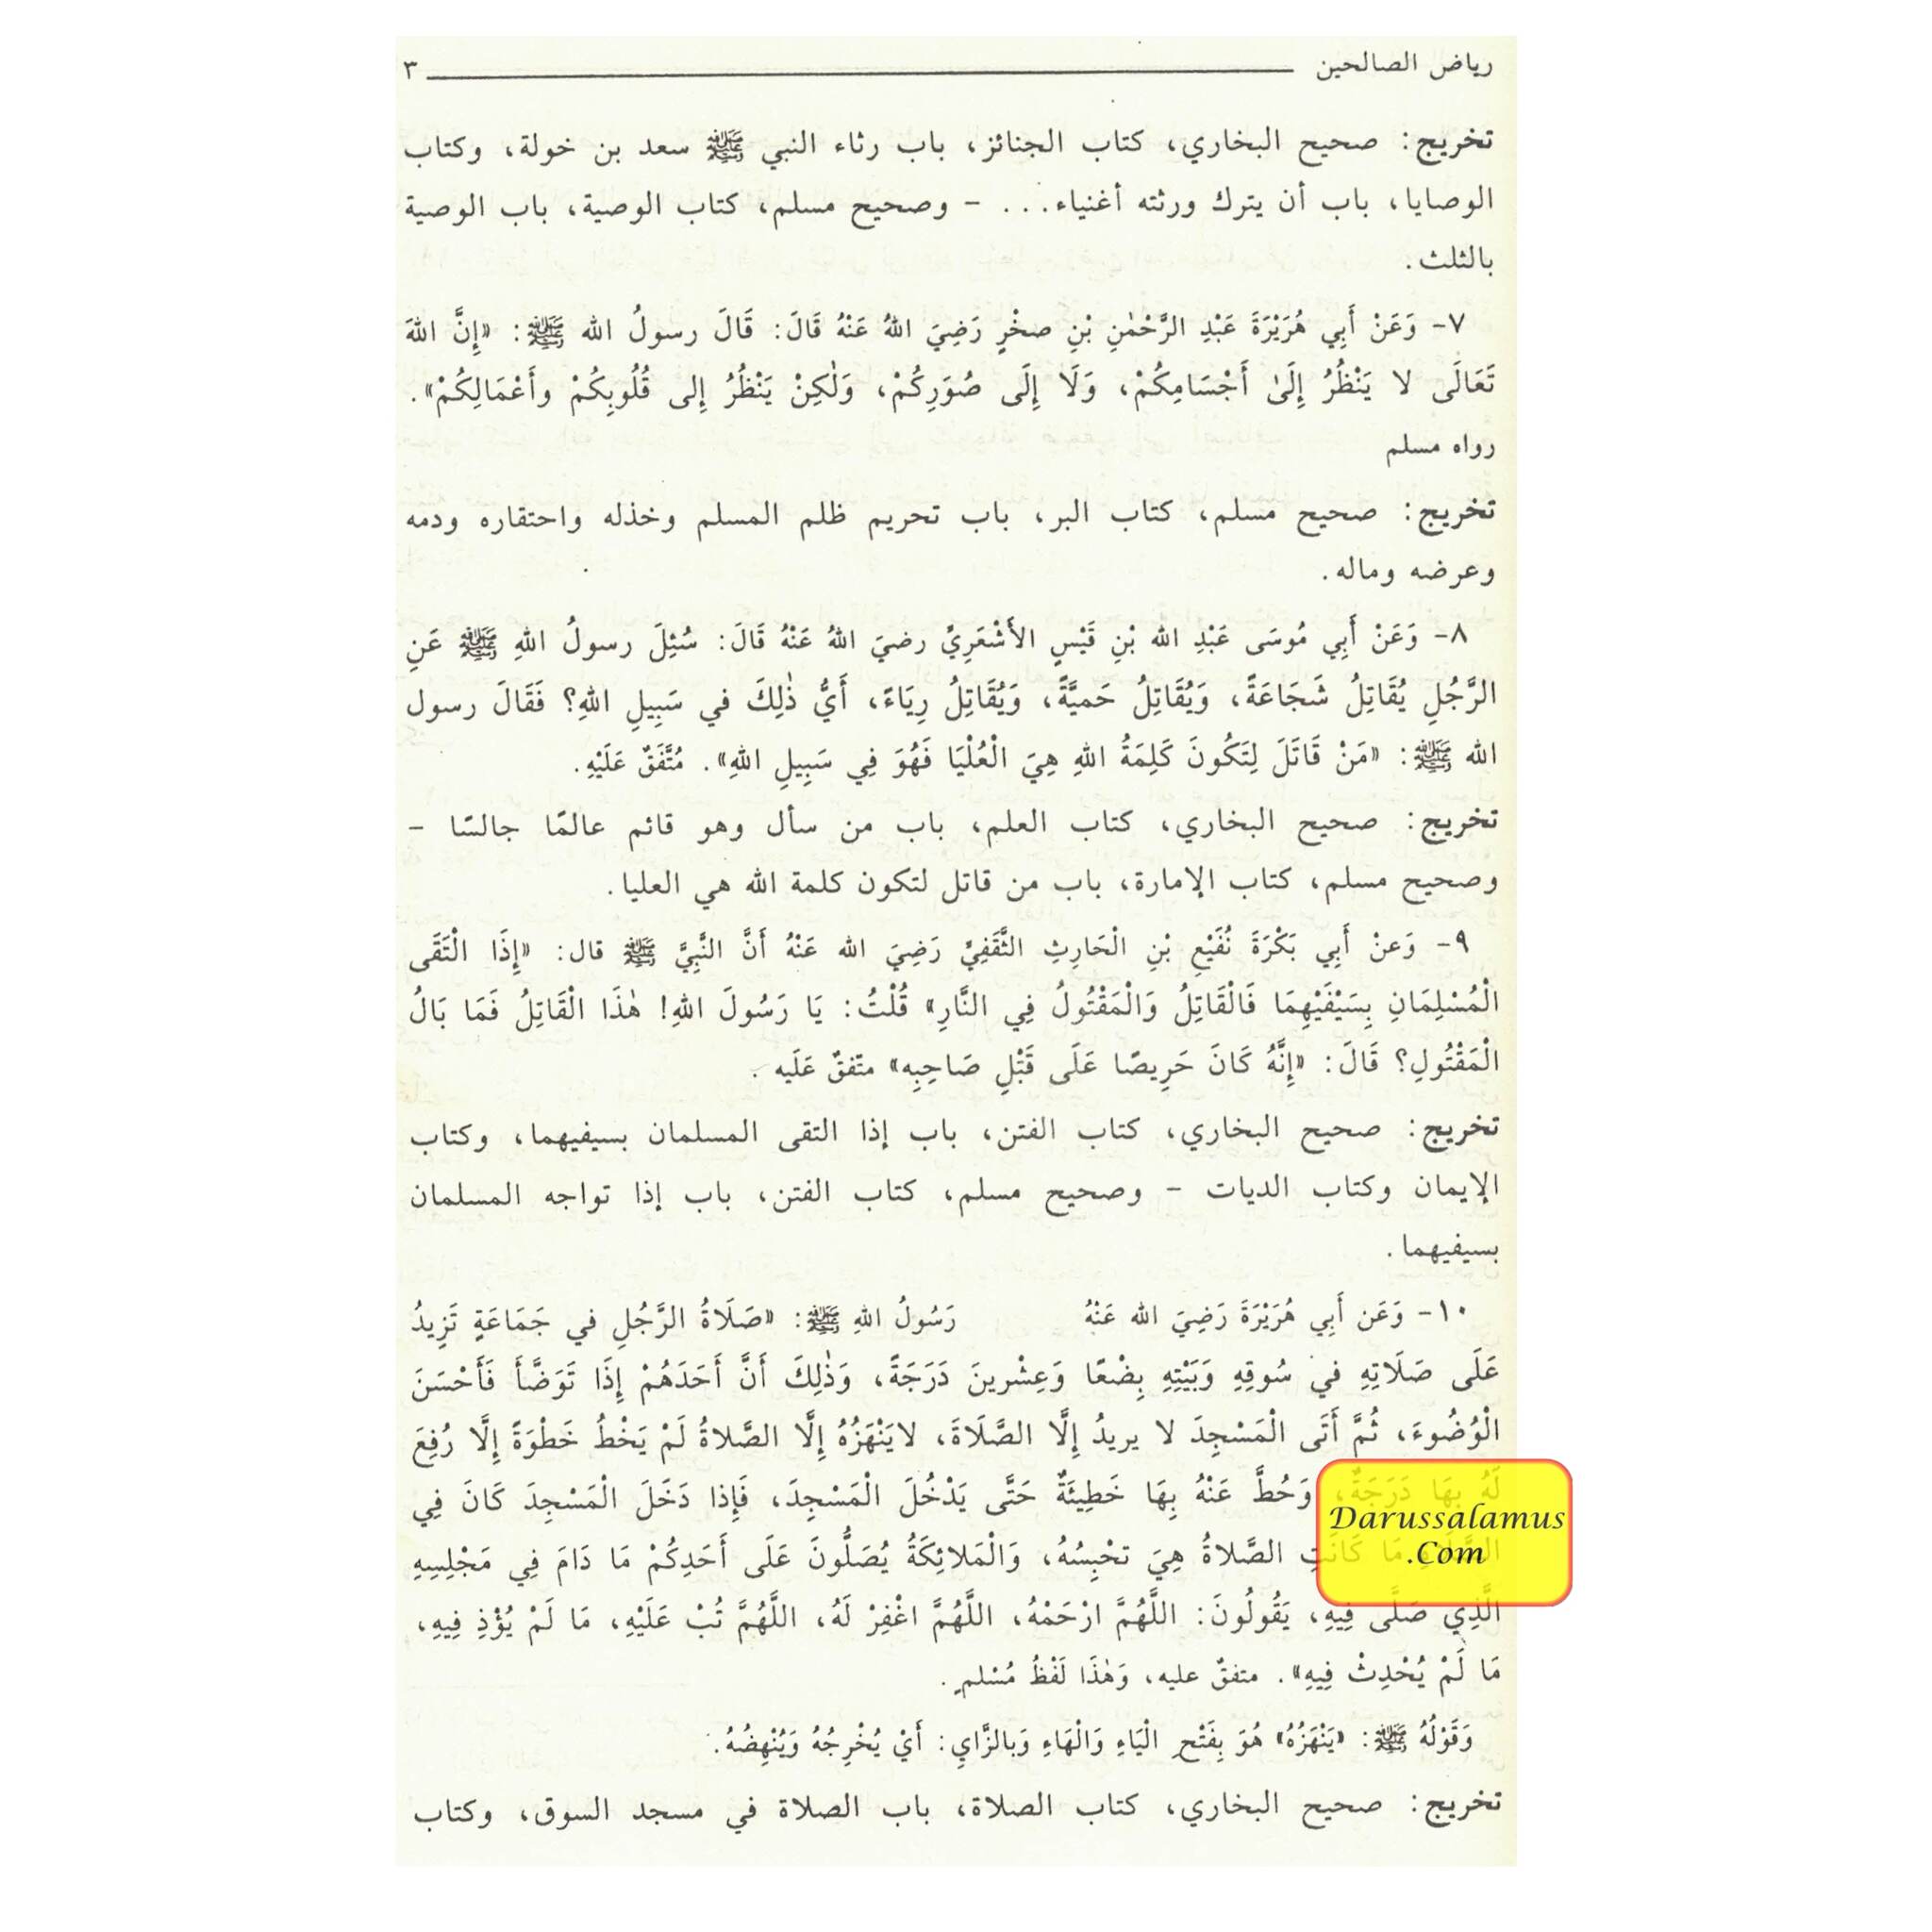 رياض الصالحين ٣
تخريج: صحيح البخاري، كتاب الجنائز، باب رثاء النبي ﷺ سعد بن خولة، وكتاب
الوصايا، باب أن يترك ورثته أغنياء... - وصحيح مسلم، كتاب الوصية، باب الوصية
بالثلث.
٧- وَعَنْ أَبِي هُرَيْرَةَ عَبْدِ الرَّحْمٰنِ بْنِ صخْرٍ رَضِيَ اللهُ عَنْهُ قَالَ: قَالَ رسولُ الله ﷺ: «إِنَّ اللهَ
تَعَالَى لا يَنْظُرُ إِلَىٰ أَجْسَامِكُمْ، وَلَا إِلَى صُوَرِكُمْ، وَلٰكِنْ يَنْظُرُ إِلى قُلُوبِكُمْ وأَعْمَالِكُمْ».
رواه مسلم
تخريج: صحيح مسلم، كتاب البر، باب تحريم ظلم المسلم وخذله واحتقاره ودمه
وعرضه وماله.
٨- وَعَنْ أَبِي مُوسَى عَبْدِ الله بْنِ قَيْسٍ الأَشْعَرِيِّ رضيَ اللهُ عَنْهُ قَالَ: سُئِلَ رسولُ اللهِ ﷺ عَنِ
الرَّجُلِ يُقَاتِلُ شَجَاعَةً، وَيُقَاتِلُ حَميَّةً، وَيُقَاتِلُ رِيَاءً، أَيُّ ذٰلِكَ في سَبِيلِ اللهِ؟ فَقَالَ رسول
الله ﷺ: «مَنْ قَاتَلَ لِتَكُونَ كَلِمَةُ اللهِ هِيَ الْعُلْيَا فَهُوَ فِي سَبِيلِ اللهِ». مُتَّفَقٌ عَلَيْهِ.
تخريج: صحيح البخاري، كتاب العلم، باب من سأل وهو قائم عالمًا جالسًا -
وصحيح مسلم، كتاب الإمارة، باب من قاتل لتكون كلمة الله هي العليا.
٩- وَعنْ أَبِي بَكْرَةَ نُفَيْعِ بْنِ الْحَارِثِ الثَّقَفِيِّ رَضِيَ الله عَنْهُ أَنَّ النَّبِيَّ ﷺ قال: «إِذَا الْتَقَى
الْمُسْلِمَانِ بِسَيْفَيْهِمَا فَالْقَاتِلُ وَالْمَقْتُولُ فِي النَّارِ» قُلْتُ: يَا رَسُولَ اللهِ! هٰذَا الْقَاتِلُ فَمَا بَالُ
الْمَقْتُولِ؟ قَالَ: «إِنَّهُ كَانَ حَرِيصًا عَلَى قَتْلِ صَاحِبِه» متّفقٌ عَلَيه.
تخريج: صحيح البخاري، كتاب الفتن، باب إذا التقى المسلمان بسيفيهما، وكتاب
الإيمان وكتاب الديات - وصحيح مسلم، كتاب الفتن، باب إذا تواجه المسلمان
بسيفيهما.
١٠- وَعَن أَبِي هُرَيْرَةَ رَضِيَ الله عَنْهُ رَسُولُ اللهِ ﷺ: «صَلَاةُ الرَّجُلِ في جَمَاعَةٍ تَزِيدُ
عَلَى صَلَاتِهِ في سُوقِهِ وَبَيْتِهِ بِضْعًا وَعِشْرينَ دَرَجَةً، وَذٰلِكَ أَنَّ أَحَدَهُمْ إِذَا تَوَضَّأَ فَأَحْسَنَ
الْوُضُوءَ، ثُمَّ أَتَى الْمَسْجِدَ لا يريدُ إِلَّا الصَّلَاةَ، لايَنْهَزُهُ إِلَّا الصَّلاةُ لَمْ يَخْطُ خَطْوَةً إِلَّا رُفِعَ
لَهُ بِهَا دَرَجَةٌ، وَحُطَّ عَنْهُ بِهَا خَطِيئَةٌ حَتَّى يَدْخُلَ الْمَسْجِدَ، فَإِذا دَخَلَ الْمَسْجِدَ كَانَ فِي
الصَّلَاةِ مَا كَانَتِ الصَّلاةُ هِيَ تحْبِسُهُ، وَالْمَلائِكَةُ يُصَلُّونَ عَلَى أَحَدِكُمْ مَا دَامَ فِي مَجْلِسِهِ
الَّذِي صَلَّى فِيهِ، يَقُولُونَ: اللَّهُمَّ ارْحَمْهُ، اللَّهُمَّ اغْفِرْ لَهُ، اللَّهُمَّ تُبْ عَلَيْهِ، مَا لَمْ يُؤْذِ فِيهِ،
مَا لَمْ يُحْدِثْ فِيهِ». متفقٌ عليه، وَهٰذَا لَفْظُ مُسْلمٍ.
وَقَوْلُهُ ﷺ: «يَنْهَزُهُ» هُوَ بِفَتْحِ الْيَاءِ وَالْهَاءِ وَبالزَّايِ: أَيْ يُخْرِجُهُ وَيُنْهِضُهُ.
تخريج: صحيح البخاري، كتاب الصلاة، باب الصلاة في مسجد السوق، وكتاب
Darussalamus
.Com